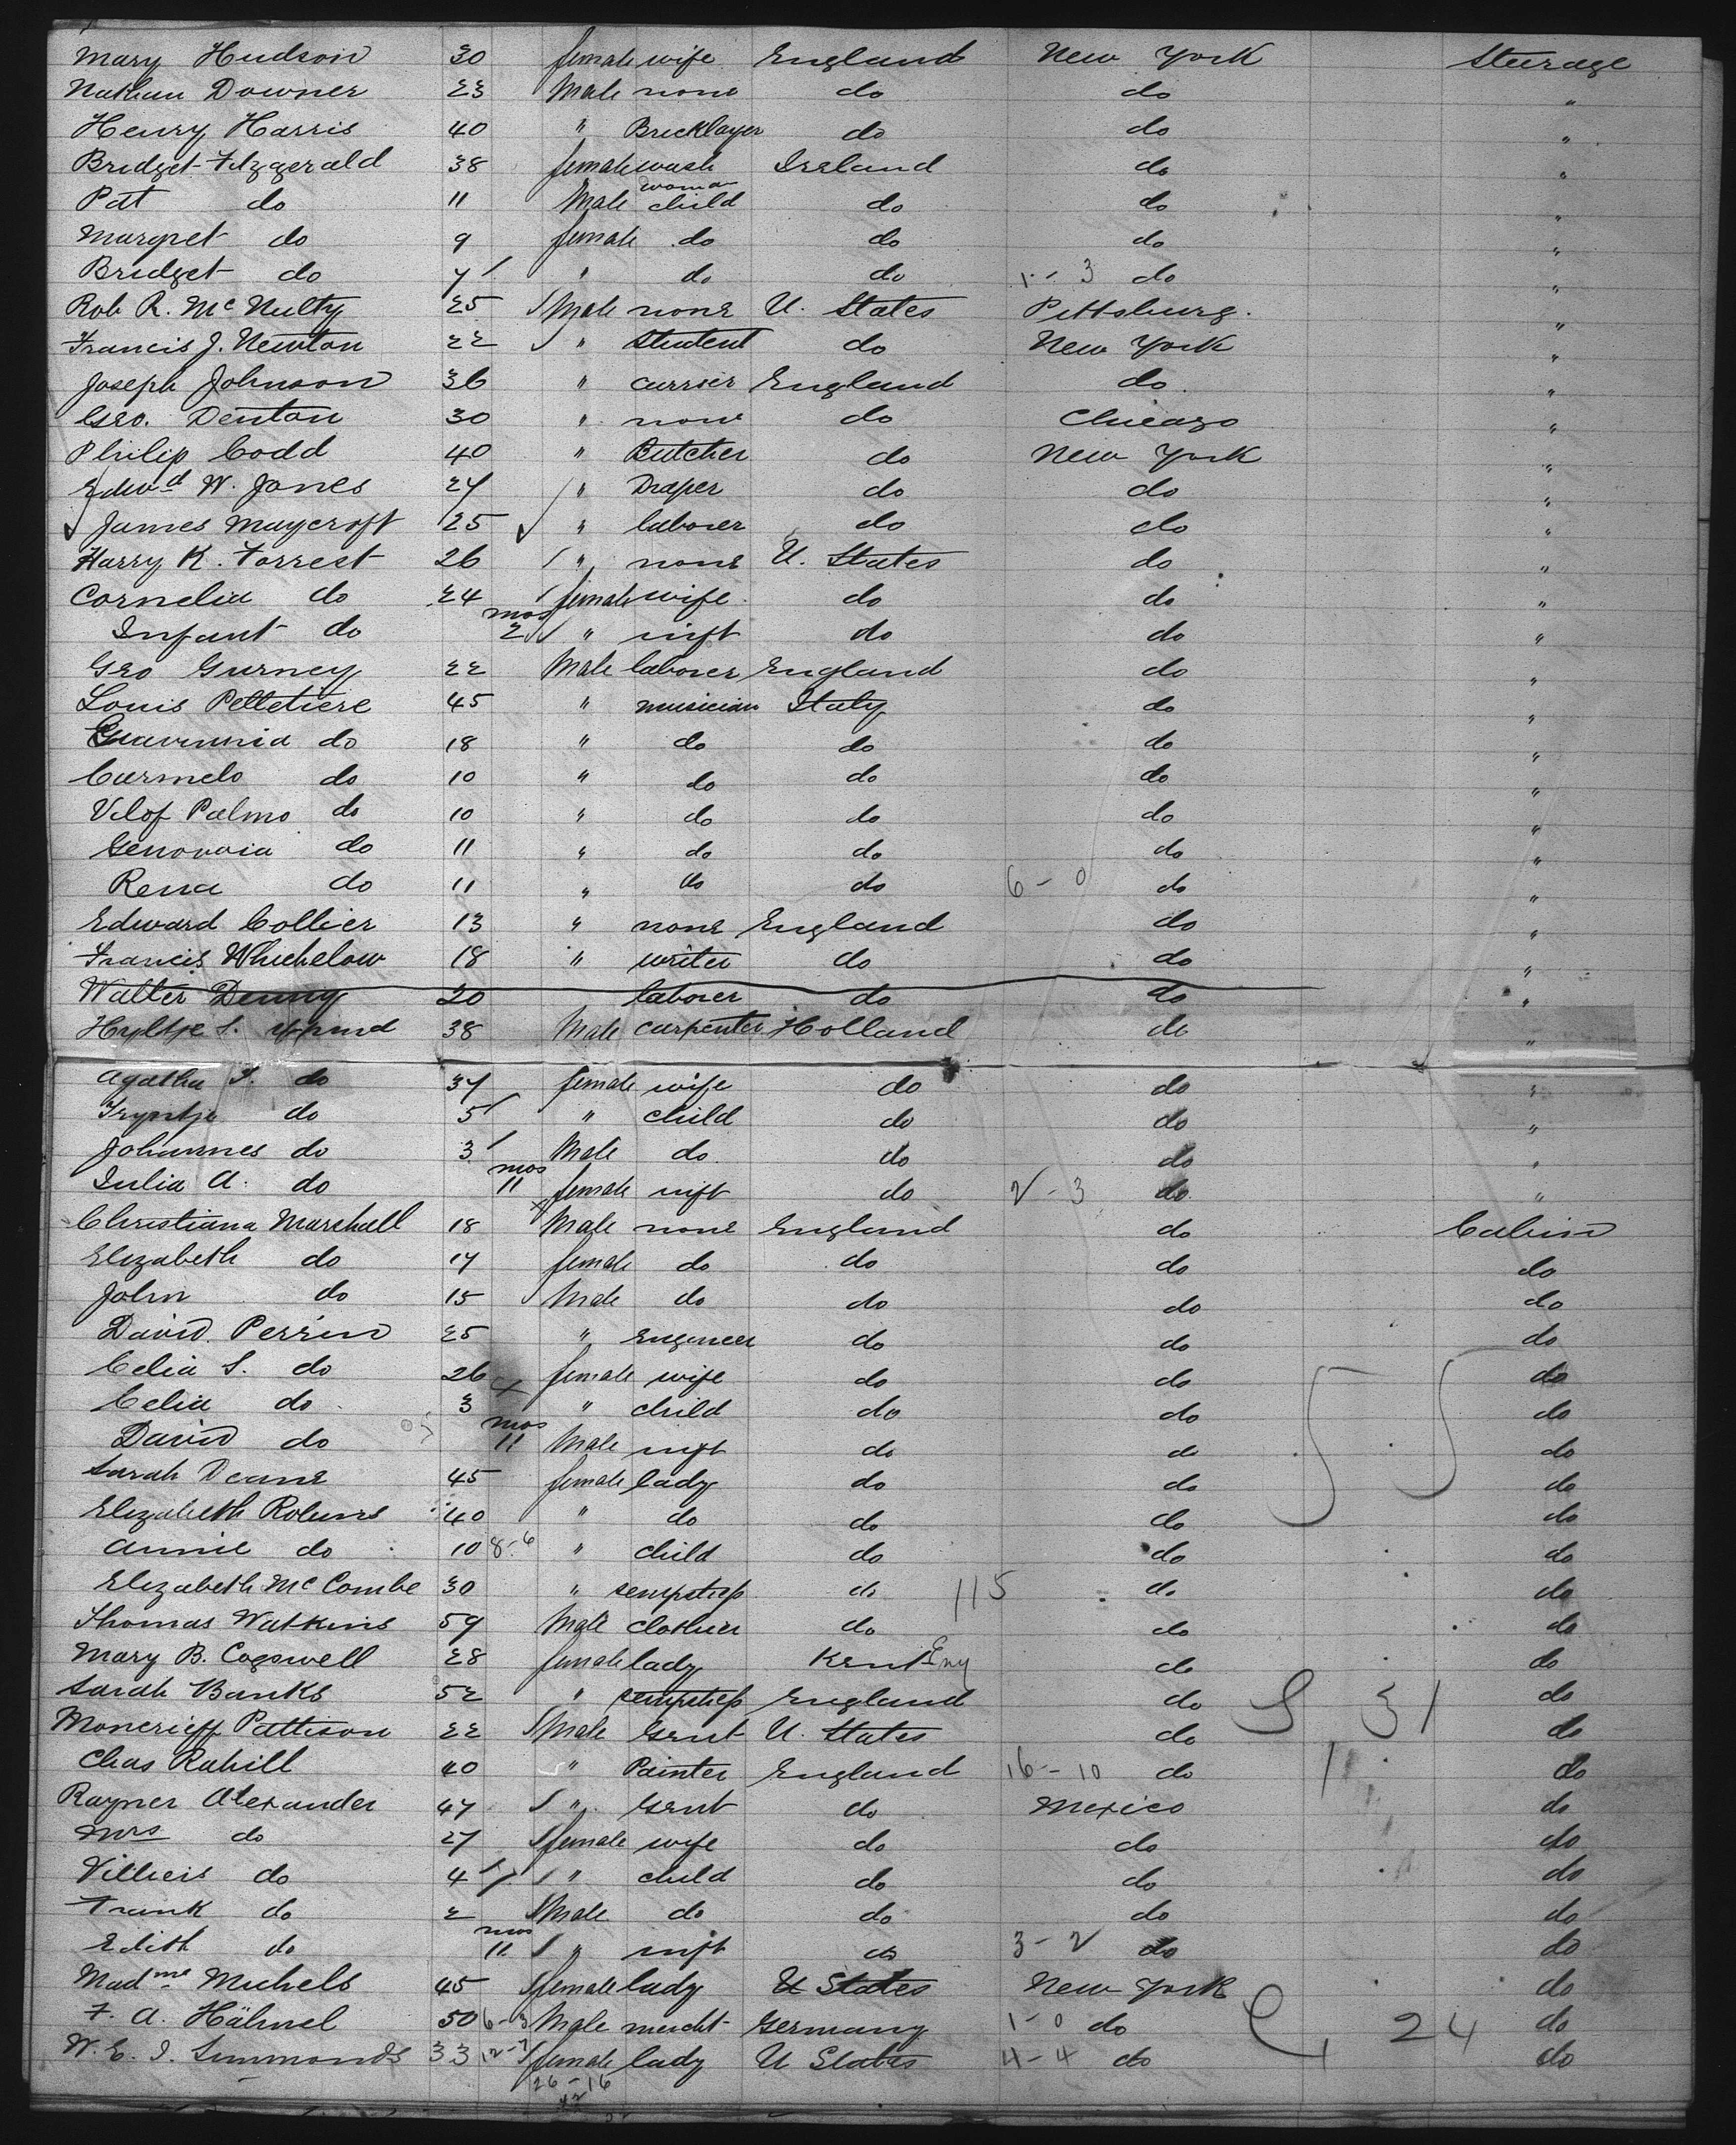 Mary Hudson 30 female wife England New York Steerage
Nathan Downer 23 Male none do do "
Henry Harris 40 " Bricklayer do do "
Bridget Fitzgerald 38 female wash woman Ireland do "
Pat do 11 Male child do do "
Margret do 9 female do do do "
Bridget do 7 " do do 1 - 3 do "
Rob R. McNulty 25 Male none U. States Pittsburg. "
Francis J. Newton 22 " Student do New York "
Joseph Johnson 36 " currier England do "
Geo. Denton 30 " none do Chicago "
Philip Codd 40 " Butcher do New York "
Edwd W. Jones 27 " Draper do do "
James Maycroft 25 " laborer do do "
Harry K. Forrest 26 " none U. States do "
Cornelia do 24 female wife do do "
Infant do mos 2 " inft do do "
Geo Gurney 22 Male laborer England do "
Louis Pelletiere 45 " musician Italy do "
do 18 " do do do "
Carmelo do 10 " do do do "
Vilof Palmo do 10 " do do do "
Genovaia do 11 " do do do "
Rena do 11 " do do 6 - 0 do "
Edward Collier 13 " none England do "
Francis Whichelow 18 " writer do do "
Walter Denny 20 laborer do do "
Hyltje S. 38 Male carpenter Holland do "
Agatha S. do 37 female wife do do "
Tryntje do 5 " child do do "
Johannes do 3 Male do do do "
Julia A. do mos 11 female inft do 2 - 3 do "
Christiana Marshall 18 Male none England do Cabin
Elizabeth do 17 female do do do do
John do 15 Male do do do do
David Perrin 25 " Engineer do do do
Celia S. do 26 female wife do do do
Celia do 3 " child do do do
David do mos 11 Male inft do do do
Sarah Deane 45 female lady do do do
Elizabeth Robins 40 " do do do do
Annie do 10 8-6 " child do do do
Elizabeth McCombe 30 " sempstress do 115 do do
Thomas Watkins 59 Male clothier do do do
Mary B. Cogswell 28 female lady Kent Eng do do
Sarah Banks 52 " sempstress England do do
Moncrieff Pattison 22 Male Gent U. States do S 31 do
Chas Rahill 40 " Painter England 16 - 10 do do
Rayner Alexander 47 " Gent do Mexico do
Mrs do 27 female wife do do do
Villieis do 4 " child do do do
Frank do 2 Male do do do do
Edith do mos 11 " inft do 3 - 2 do do
Madme Michels 45 female lady U States New York do
F. A. Hähnel 50 6-3 Male mercht Germany 1-0 do C, 24 do
W. E. I. Simmonds 33 12-7 female lady U States 4-4 do do
26 - 16
42